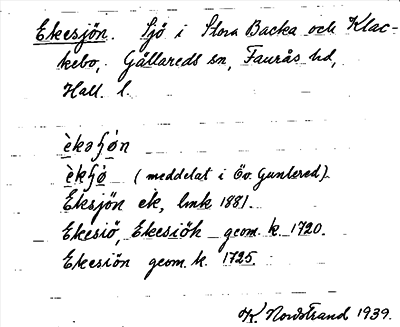 Ekesjön. Sjö i Stora Backa och Klac-
kebo, Gällareds sn, Faurås hd,
Hall. l.
èkəʃón
èkʃó (meddelat i Öv. Guntered)
Eksjön ek, lmk 1881.
Ekesiö, Ekesiöh geom. k. 1720.
Ekesiön geom. k. 1725.
K. Nordstrand 1939.